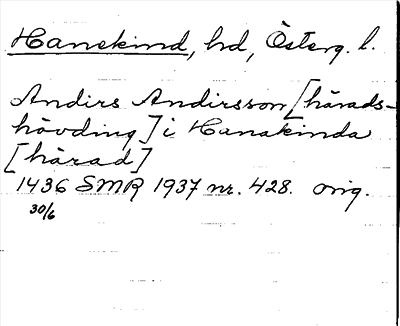 Hanekind, hd, Österg. l.
Andirs Andirsson [härads-
hövding] i Hanakinda
[härad]
1436 SMR 1937 nr. 428. orig.
30/6